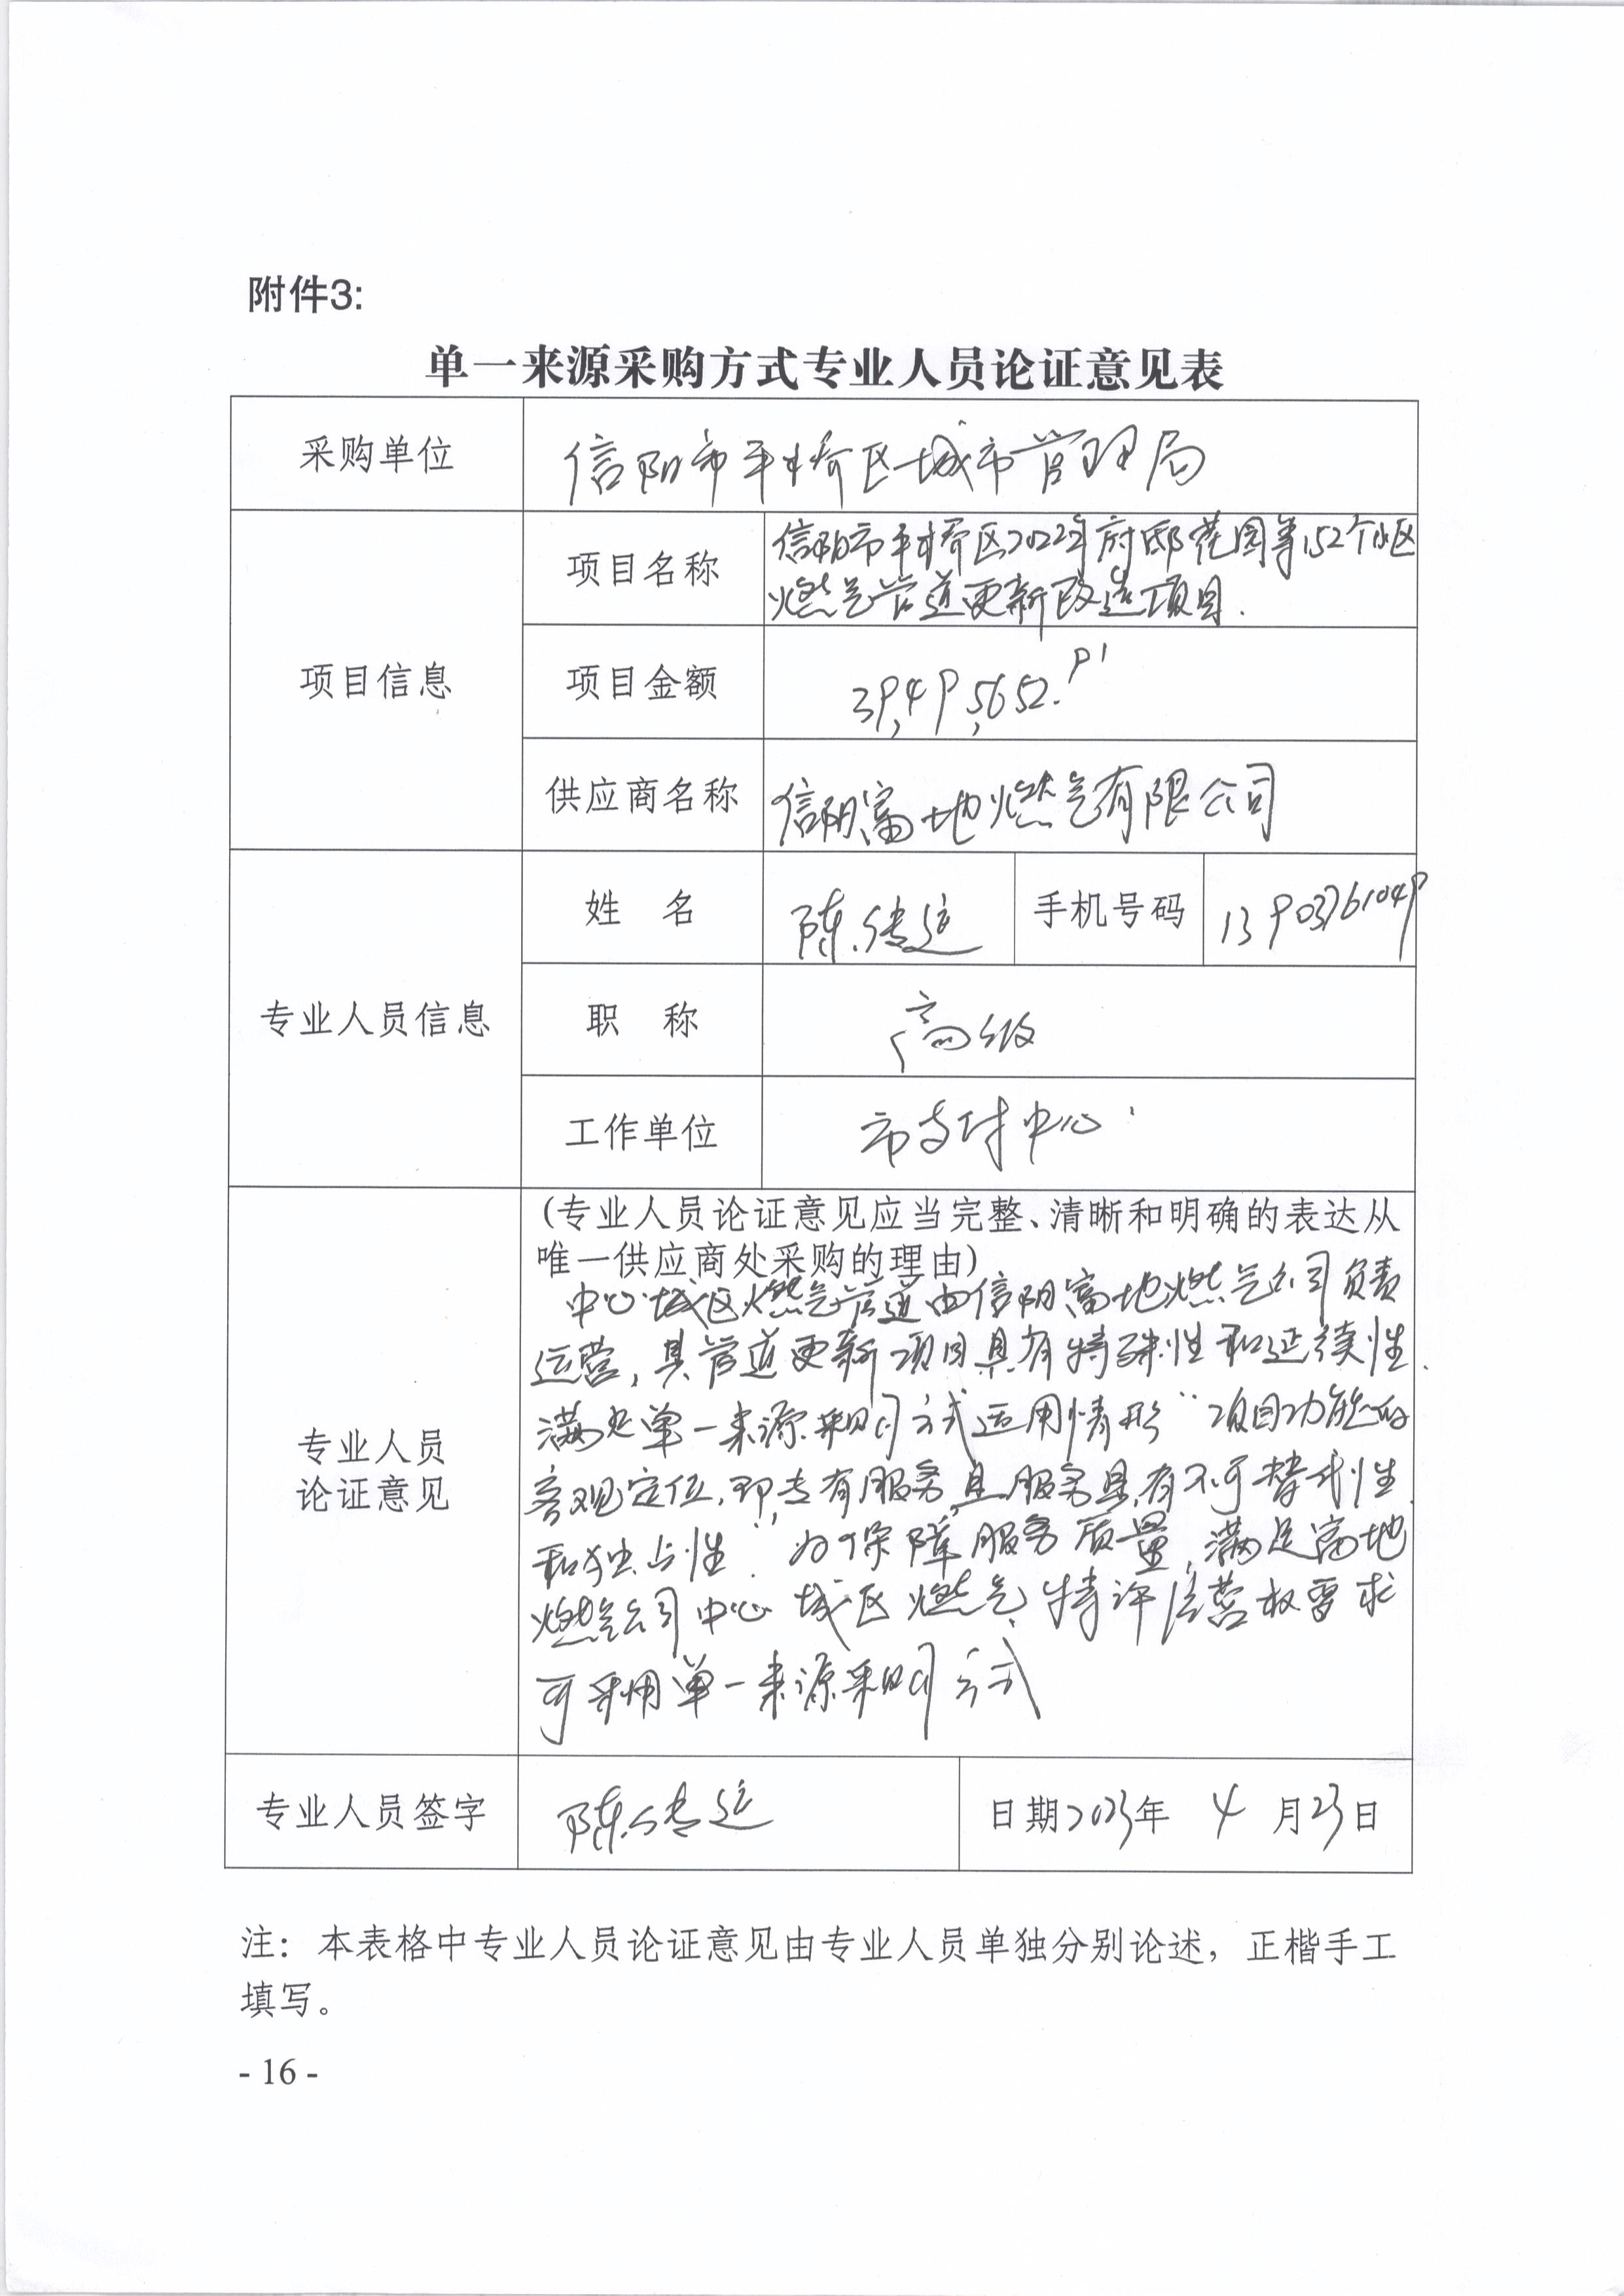 附件3:
单一来源采购方式专业人员论证意见表
采购单位 信阳市平桥区城市管理局
项目信息
项目名称 信阳市平桥区2022年府邸花园等152个小区
燃气管道更新改造项目.
项目金额 39,49,5652.91
供应商名称 信阳富地燃气有限公司
专业人员信息
姓 名 陈传运 手机号码 13903761049
职 称 高级
工作单位 市支付中心
专业人员
论证意见
(专业人员论证意见应当完整、清晰和明确的表达从
唯一供应商处采购的理由)
中心城区燃气管道由信阳富地燃气公司负责
运营,其管道更新项目具有特殊性和延续性.
满足单一来源采购方式适用情形“项目功能的
客观定位,即专有服务,且服务具有不可替代性
和独占性.”为保障服务质量,满足富地
燃气公司中心城区燃气特许经营权要求
可采用单一来源采购方式
专业人员签字 陈传运 日期2023年 4 月23日
注：本表格中专业人员论证意见由专业人员单独分别论述，正楷手工
填写。
- 16 -